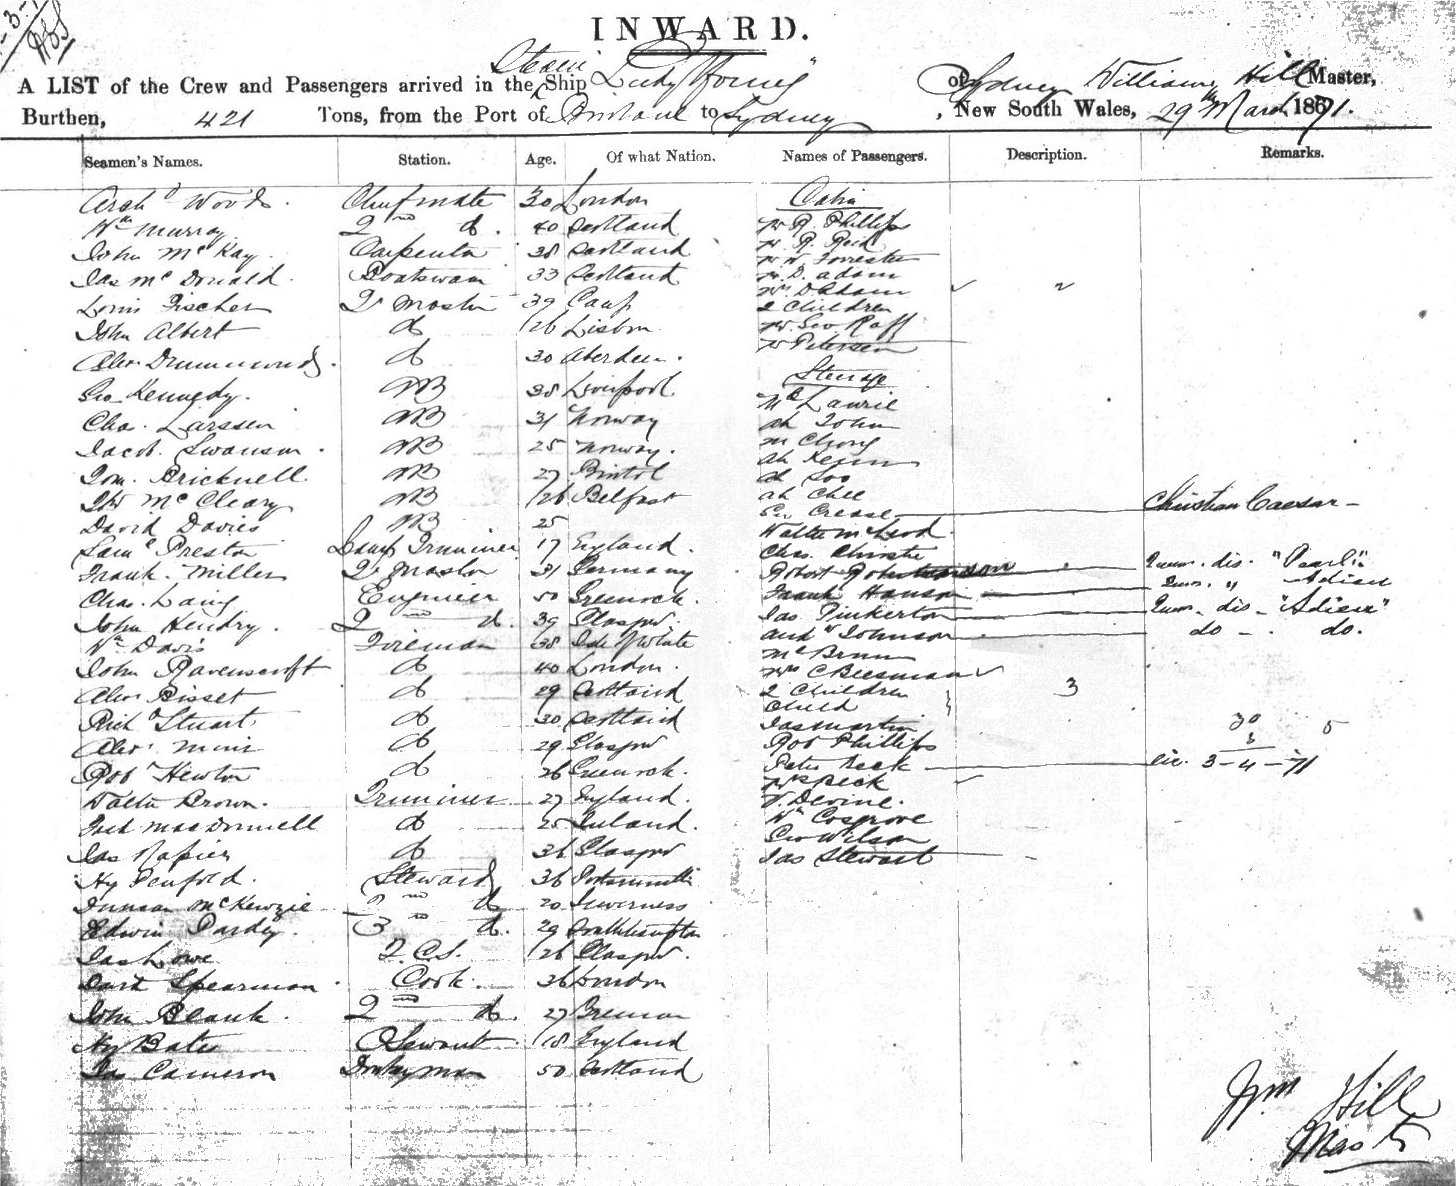 INWARD.
A LIST of the Crew and Passengers arrived in the Steam Ship Lady Young of Sydney William Hill Master,
Burthen, 421 Tons, from the Port of Brisbane to Sydney, New South Wales, 29th March 1871.
Seamen's Names. Station. Age. Of what Nation. Names of Passengers. Description. Remarks.
Archd Woods. Chief mate 30 London Cabin
Wm Murray 2nd do. 40 Scotland Mr R. Phillips
John McKay. Carpenter 38 Scotland Mr R. Reid
Jas McDonald. Boatswain 33 Scotland Mr W Forrester
Mr D. Adam
Louis Fischer Qr Master 39
2 Children
John Albert do 26 Lisbon Mr Geo Raff
Alexr Drummond do 30 Aberdeen. Mr Petersen
Steerage
Geo Kennedy. AB 38 Liverpool
Mc Laurie
Chas. Larssen AB 31 Norway ah John
Jacob. Swanson. AB 25 Norway. m Chong
Tom. Bricknell AB 27 Bristol ah Soo
McCleary AB 26 Belfast ah Chee
Geo Crease Christian Caesar
David Davies AB 25
Saml Preston Lamp Trimmer 17 England. Chas. Christie
Frank. Miller Qr Master 31 Germany Robert "Pearl"
Chas. Laing Engineer 50 Greenock. Frank Hanson
John Hendry. 2nd do. 39 Glasgow. Jas Pinkerton dis
Wm Davis Fireman 38 Isle of White andw Johnson do. do.
Mc Brun
John Ravenscroft do 40 London. Mrs C Beesman
Alexr Bisset do 29 Scotland 2 Children 3
Child
Richd Stuart do 30 Scotland Jas Martin 30 5
Alexr Muir do 29 Glasgow Rob Phillips
Robt Newton do 26 Greenock. Peter Beck 3-4-71
Mr Speck
Walter Brown. Trimmer 27 England. Devine.
MacDonnell do 25 Ireland. Wm Cosgrove
Geo Wilson
Jas Napier do 36 Glasgow Jas Stewart
Hy Penfold. Steward 36 Portsmouth
Duncan McKenzie 2nd do 20 Inverness
Edwin Pardey. 3rd do. 29 Southampton
Jas Lowe 26 Glasgow.
David Spearman. Cook. 36 London
John Blank. 2nd do. 27 Bremen
Hy Bates Servant 18 England
Jas Cameron Donkeyman 50 Scotland
Wm Hill
Master